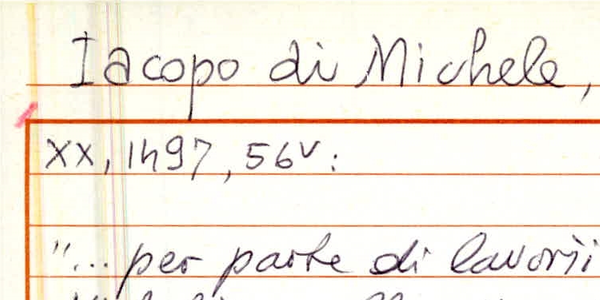 Iacopo di Michele,
XX, 1497, 56v:
"... per parte di lavorii